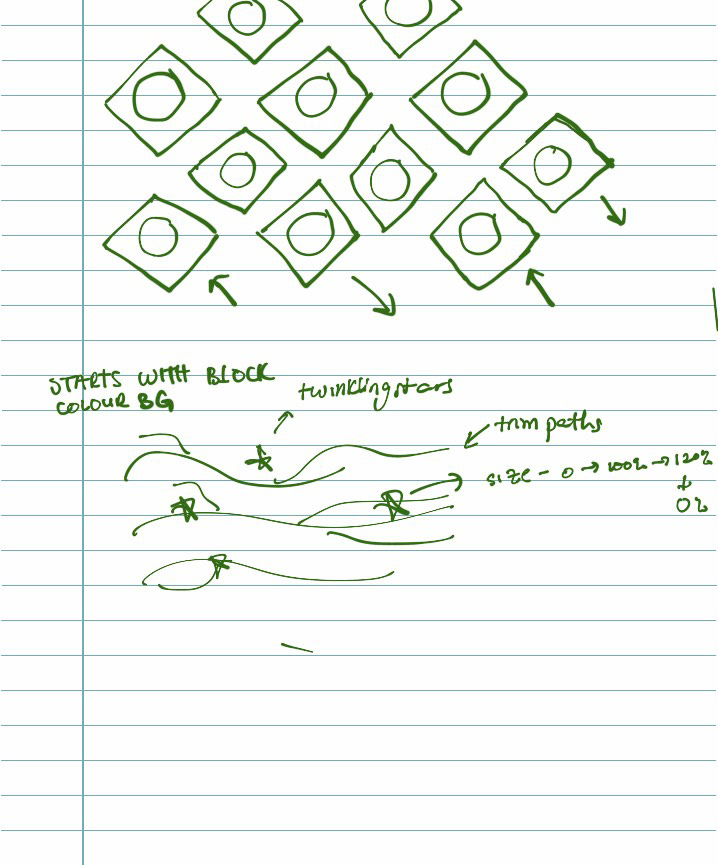 STARTS WITH BLOCK
COLOUR BG
twinkling stars
trim paths
size - 0 → 100% → 120%
↓
0%